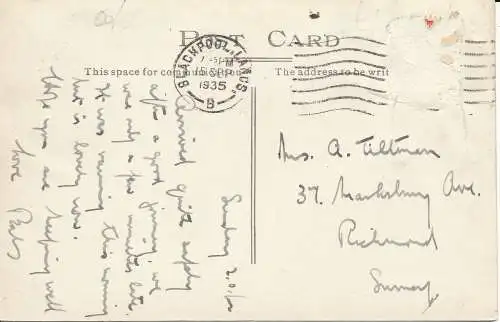 POST CARD
This space for communication
The address to be writ
BLACKPOOL, LANCS.
15 SEP
1935
B
Sunday
Arrived quite safely
after a good journey, we
was only a few minutes late.
It was raining this morning
but is lovely now.
Hope you are keeping well
Love
Mrs. A. Tiltman
37, Marksbury Ave.
Richmond
Surrey.